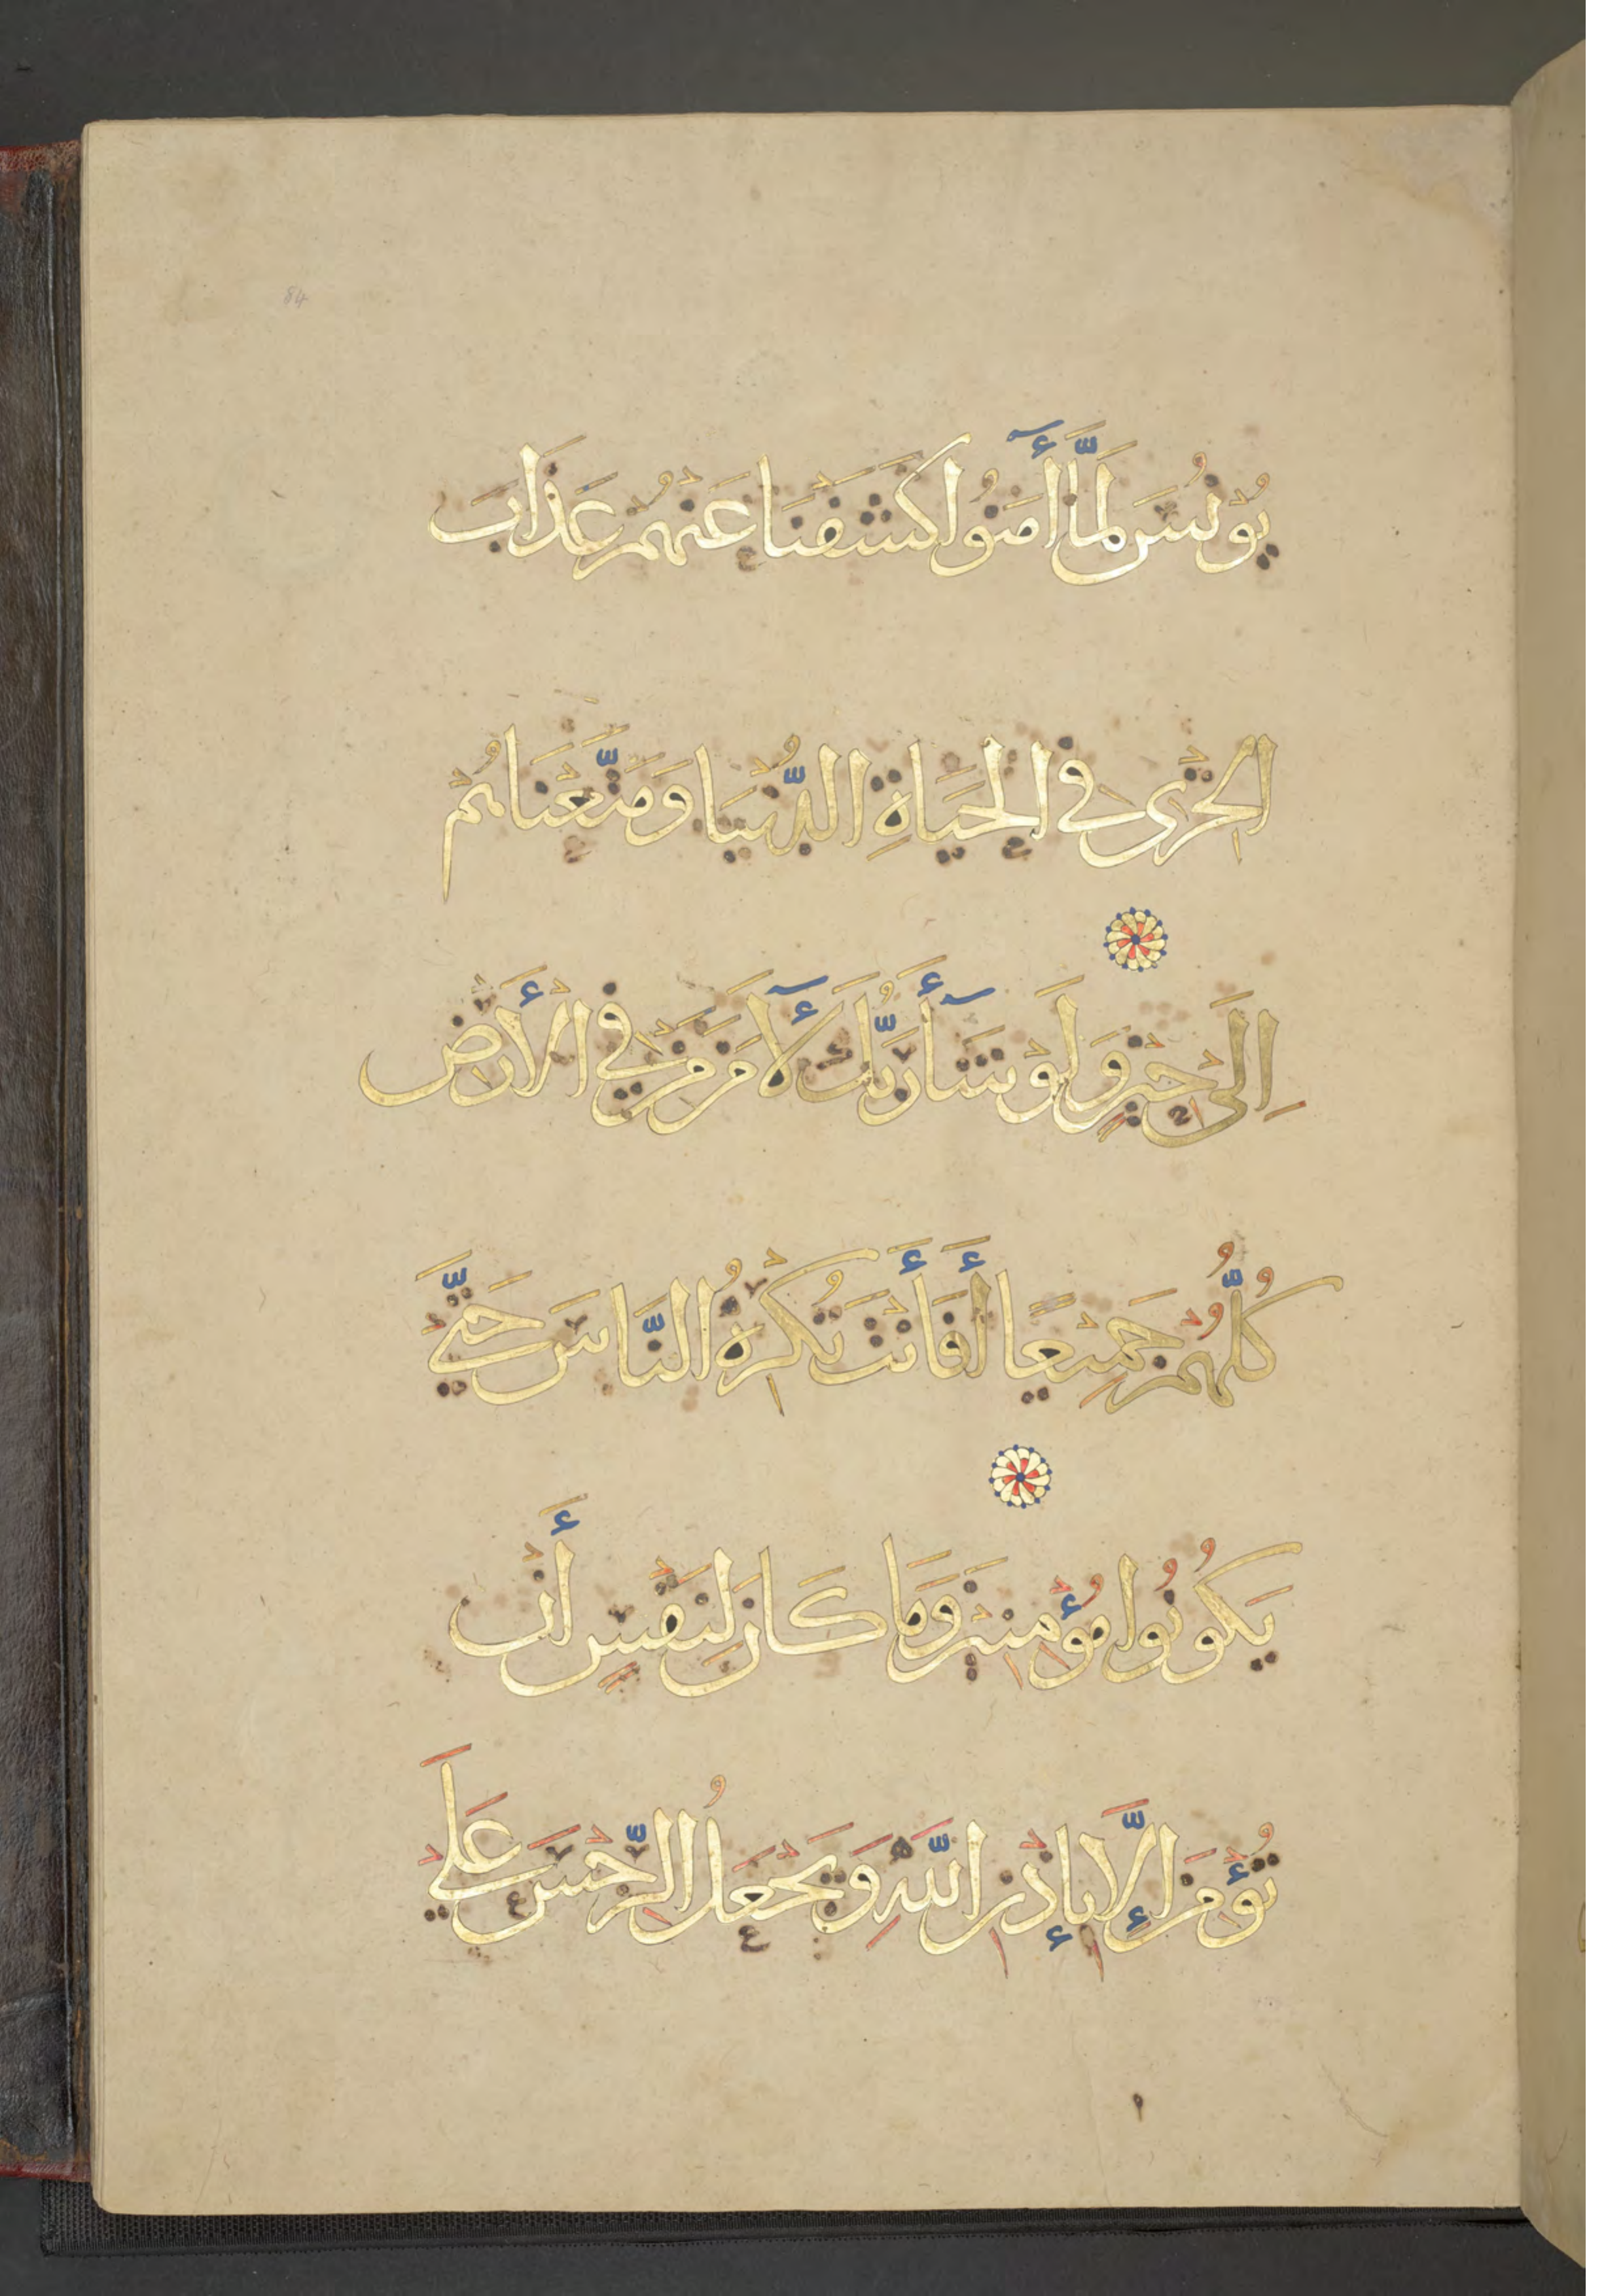 84
يُونُسَ لَمَّا أٓمَنُوا كَشَفْنَا عَنْهُمْ عَذَابَ
الخِزْىِ فِي الْحَيَاةِ الدُّنْيَا وَمَتَّعْنَاهُمْ
إِلَىٰ حِيْنٍ وَلَوْ شَآأَ رَبُّكَ لَأٓمَنَ مَنْ فِي الْأَرْضِ
كُلُّهُمْ جَمِيْعًا أَفَأَنْتَ تُكْرِهُ النَّاسَ حَتَّىٰ
يَكُوْنُوْا مُؤْمِنِيْنَ وَمَا كَانَ لِنَفْسٍ أَنْ
تُؤْمِنَ إِلَّا بِإِذْنِ اللَّهِ وَيَجْعَلُ الرِّجْسَ عَلَى